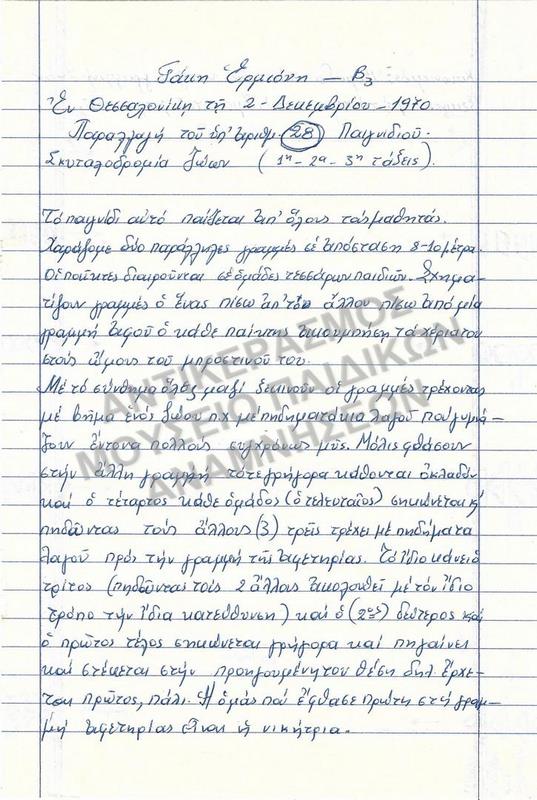 Γάκη Ἑρμιόνη — Β3
Ἐν Θεσσαλονίκῃ τῇ 2 - Δεκεμβρίου - 1970
Παραλλαγή τοῦ ὑπ' ἀριθμ. 28 Παιγνιδιοῦ.
Σκυταλοδρομία ζώων (1η - 2α - 3η τάξεις).
Τό παιγνίδι αὐτό παίζεται ἀπ' ὅλους τούς μαθητάς.
Χαράζομε δύο παράλληλες γραμμές σέ ἀπόσταση 8-10 μέτρα.
Οἱ παῖκτες διαιροῦνται σέ ὁμάδες τεσσάρων παιδιῶν. Σχημα-
τίζουν γραμμές ὁ ἕνας πίσω ἀπ' τόν ἄλλον πίσω ἀπό μία
γραμμή ἀφοῦ ὁ κάθε παίκτης ἀκουμπήση τά χέρια του
στούς ὤμους τοῦ μπροστινοῦ του.
Μέ τό σύνθημα ὅλες μαζί ξεκινοῦν οἱ γραμμές τρέχοντας
μέ βῆμα ἑνός ζώου π.χ μέ πηδηματάκια λαγοῦ πού γυμνά-
ζουν ἔντονα πολλούς συγχρόνως μῦς. Μόλις φθάσουν
στήν ἄλλη γραμμή τότε γρήγορα κάθονται ὀκλαδόν
καί ὁ τέταρτος κάθε ὁμάδος (ὁ τελευταῖος) σηκώνεται κ'
πηδῶντας τούς ἄλλους (3) τρεῖς τρέχει μέ πηδήματα
λαγοῦ πρός τήν γραμμή τῆς ἀφετηρίας. Τό ἴδιο κάνει ὁ
τρίτος (πηδῶντας τούς 2 ἄλλους ἀκολουθεῖ μέ τόν ἴδιο
τρόπο τήν ἴδια κατεύθυνση) καί ὁ (2ος) δεύτερος καί
ὁ πρῶτος τέλος σηκώνεται γρήγορα καί πηγαίνει
καί στέκεται στήν προηγουμένη του θέση δηλ. ἔρχε-
ται πρῶτος, πάλι. Ἡ ὁμάς πού ἔφθασε πρώτη στή γραμ-
μή ἀφετηρίας εἶναι ἡ νικήτρια.
ΑΝΤΙΚΕΡΑΣΜΟΣ
ΜΟΥΣΕΙΟ ΠΑΙΔΙΚΩΝ
ΑΝΑΜΝΗΣΕΩΝ